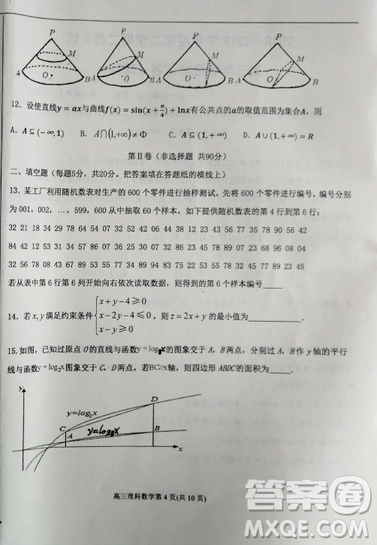 P P P P
M M M M
A O B A O B A O B A O B
12. 设使直线y=ax与曲线f(x)=sin(x+π/4)+lnx有公共点的a的取值范围为集合A，则
A．A⊆(-∞,1) B．A∩(1,+∞)≠Φ C．A⊆(1,+∞) D．A∪(1,+∞)=R
第Ⅱ卷（非选择题 共90分）
二、填空题（每题5分，共20分。把答案填在答题纸的横线上）
13. 某工厂利用随机数表对生产的600个零件进行抽样测试，先将600个零件进行编号，编号分别
为001，002，…，599，600从中抽取60个样本，如下提供随机数表的第4行到第6行：
32 21 18 34 29 78 64 54 07 32 52 42 06 44 38 12 23 43 56 77 35 78 90 56 42
84 42 12 53 31 34 57 86 07 36 25 30 07 32 86 23 45 78 89 07 23 68 96 08 04
32 56 78 08 43 67 89 53 55 77 34 89 94 83 75 22 53 55 78 32 45 77 89 23 45
若从表中第6行第6列开始向右依次读取数据，则得到的第6个样本编号____
14. 若x,y满足约束条件{x+y-4≥0 x-2y-4≤0 x-y≥0，则z=2x+y的最小值为____．
15. 如图，已知过原点O的直线与函数y=log₈x的图象交于A，B两点，分别过A，B作y轴的平行
线与函数y=log₂x图象交于C，D两点，若BC//x轴，则四边形ABDC的面积为____．
y
D
y=log₂x
C
y=log₈x
A B
x
高三理科数学第4页(共10页)
答案圈
MXQE.COM